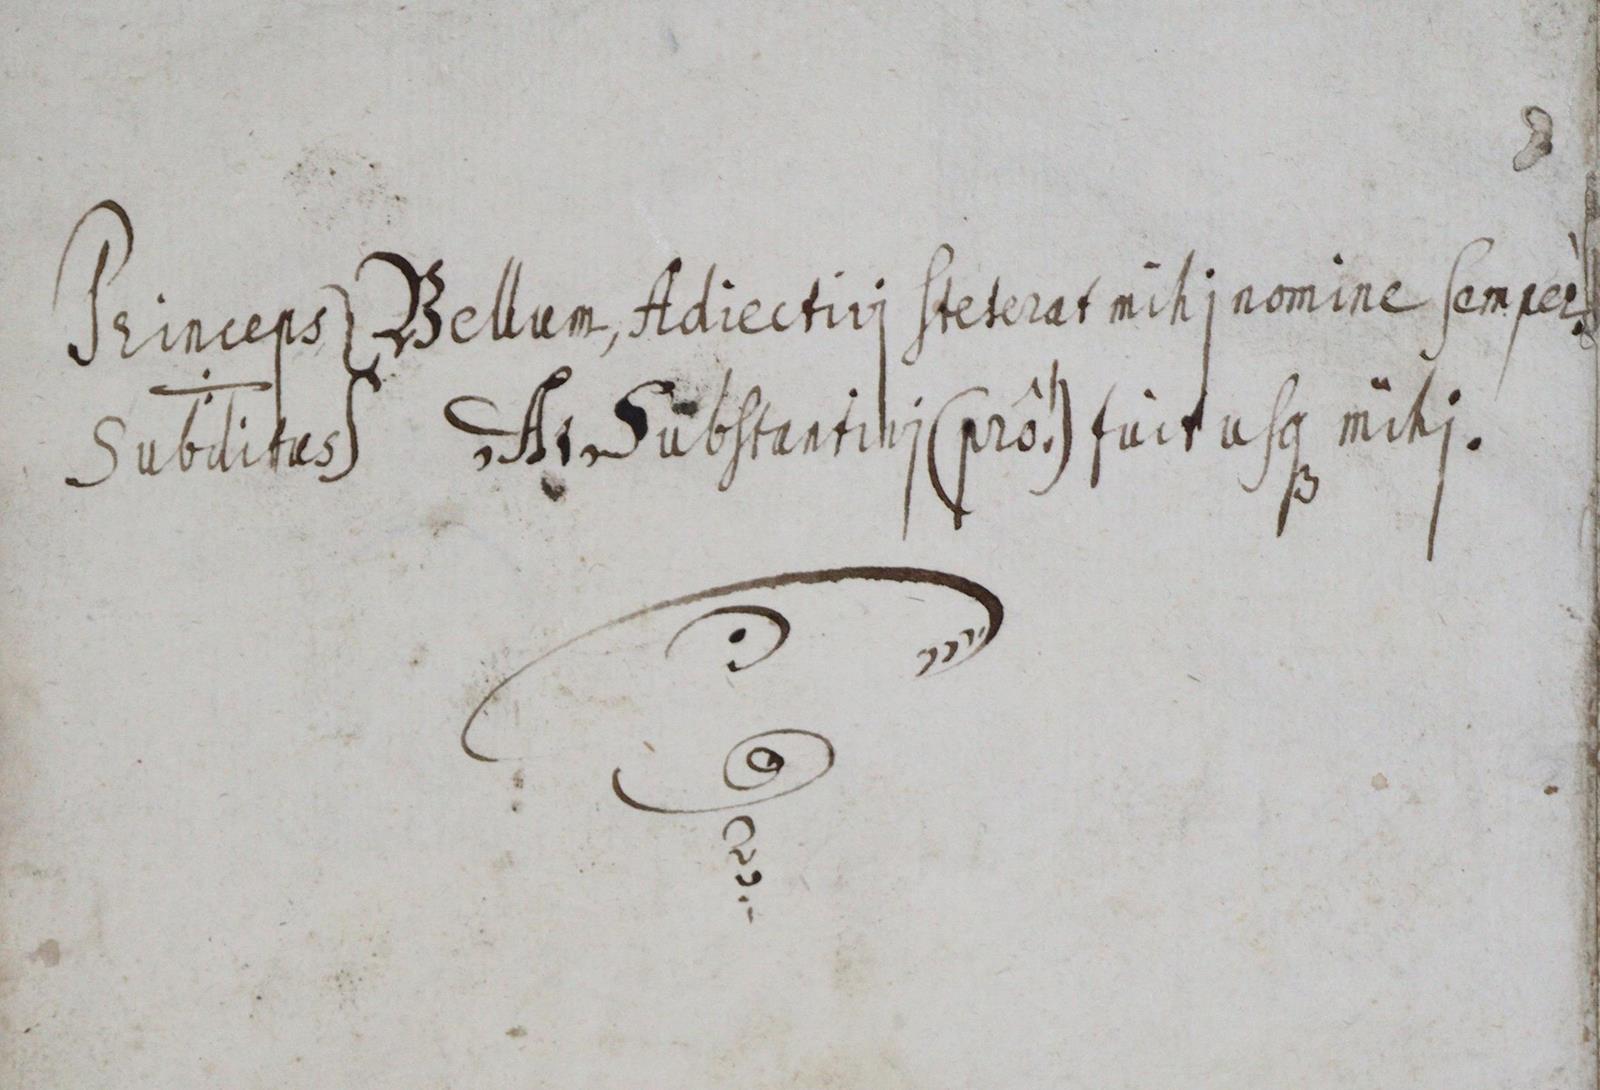 Princeps } Bellum, Adiectivj steterat mihj nomine semper.
Subditus } At Substantivj (prô!) fuit usq3 mihj.